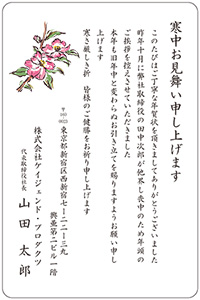 寒中お見舞い申し上げます
このたびはご丁寧な年賀状を頂きましてありがとうございました
昨年十月に弊社取締役の田中次郎が他界し喪中のため年頭の
ご挨拶を控えさせていただきました
本年も旧年中と変わらぬお引き立てを賜りますようお願い申し
上げます
寒さ厳しき折 皆様のご健勝をお祈り申し上げます
〒160-0023
東京都新宿区西新宿七ー二ー三九
興亜第二ビル一階
株式会社ケイジェンド・プロダクツ
代表取締役社長 山田 太郎